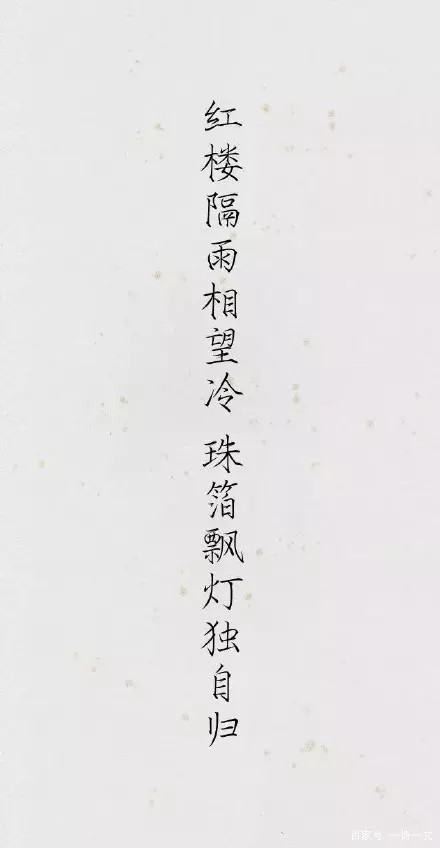 红楼隔雨相望冷 珠箔飘灯独自归
百家号